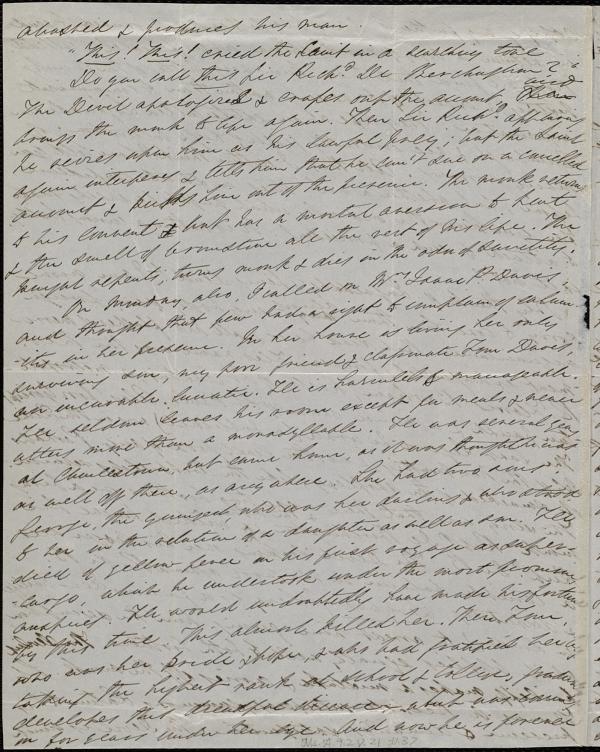 abashed & produces his man.
"This! This! cried the Saint in a scathing tone
Do you call this Sir Rich.d De Merchaylion?"
The Devil apologizes & scrapes out the account and
brings the monk to life again. Then Sir Rich.d appearing
he seizes upon him as his lawful prey; but the Saint
again interposes & tells him that he can't sue on a cancelled
account & kicks him out of the presence. The monk returns
to his convent, but has a mortal aversion to heat
& the smell of brimstone all the rest of his life. The
knight repents, turns monk & dies in the odor of Sanctity.
On Monday, also, I called on Mrs Isaac P. Davis,
and thought that few had a right to complain of calam-
ities in her presence. In her house is living her only
surviving son, my poor friend & classmate Tom Davis,
an incurable lunatic. He is harmless & manageable.
He seldom leaves his room except for meals & never
utters more than a monosyllable. He was several years
at Charlestown, but came home, as it was thought he was
as well off there, as anywhere. She had two sons.
George, the youngest, who was her darling & who stood
to her in the relation of a daughter as well as son. He
died of yellow fever on his first voyage as super-
cargo, which he undertook under the most promising
auspices. He would undoubtedly have made his fortune
by this time. This almost killed her. Then Tom,
who was her pride & hope, & who had gratified her by
taking the highest rank at school & College, gradually
developes this dreadful disease, which was coming
on for years under her eye. And now he is forever